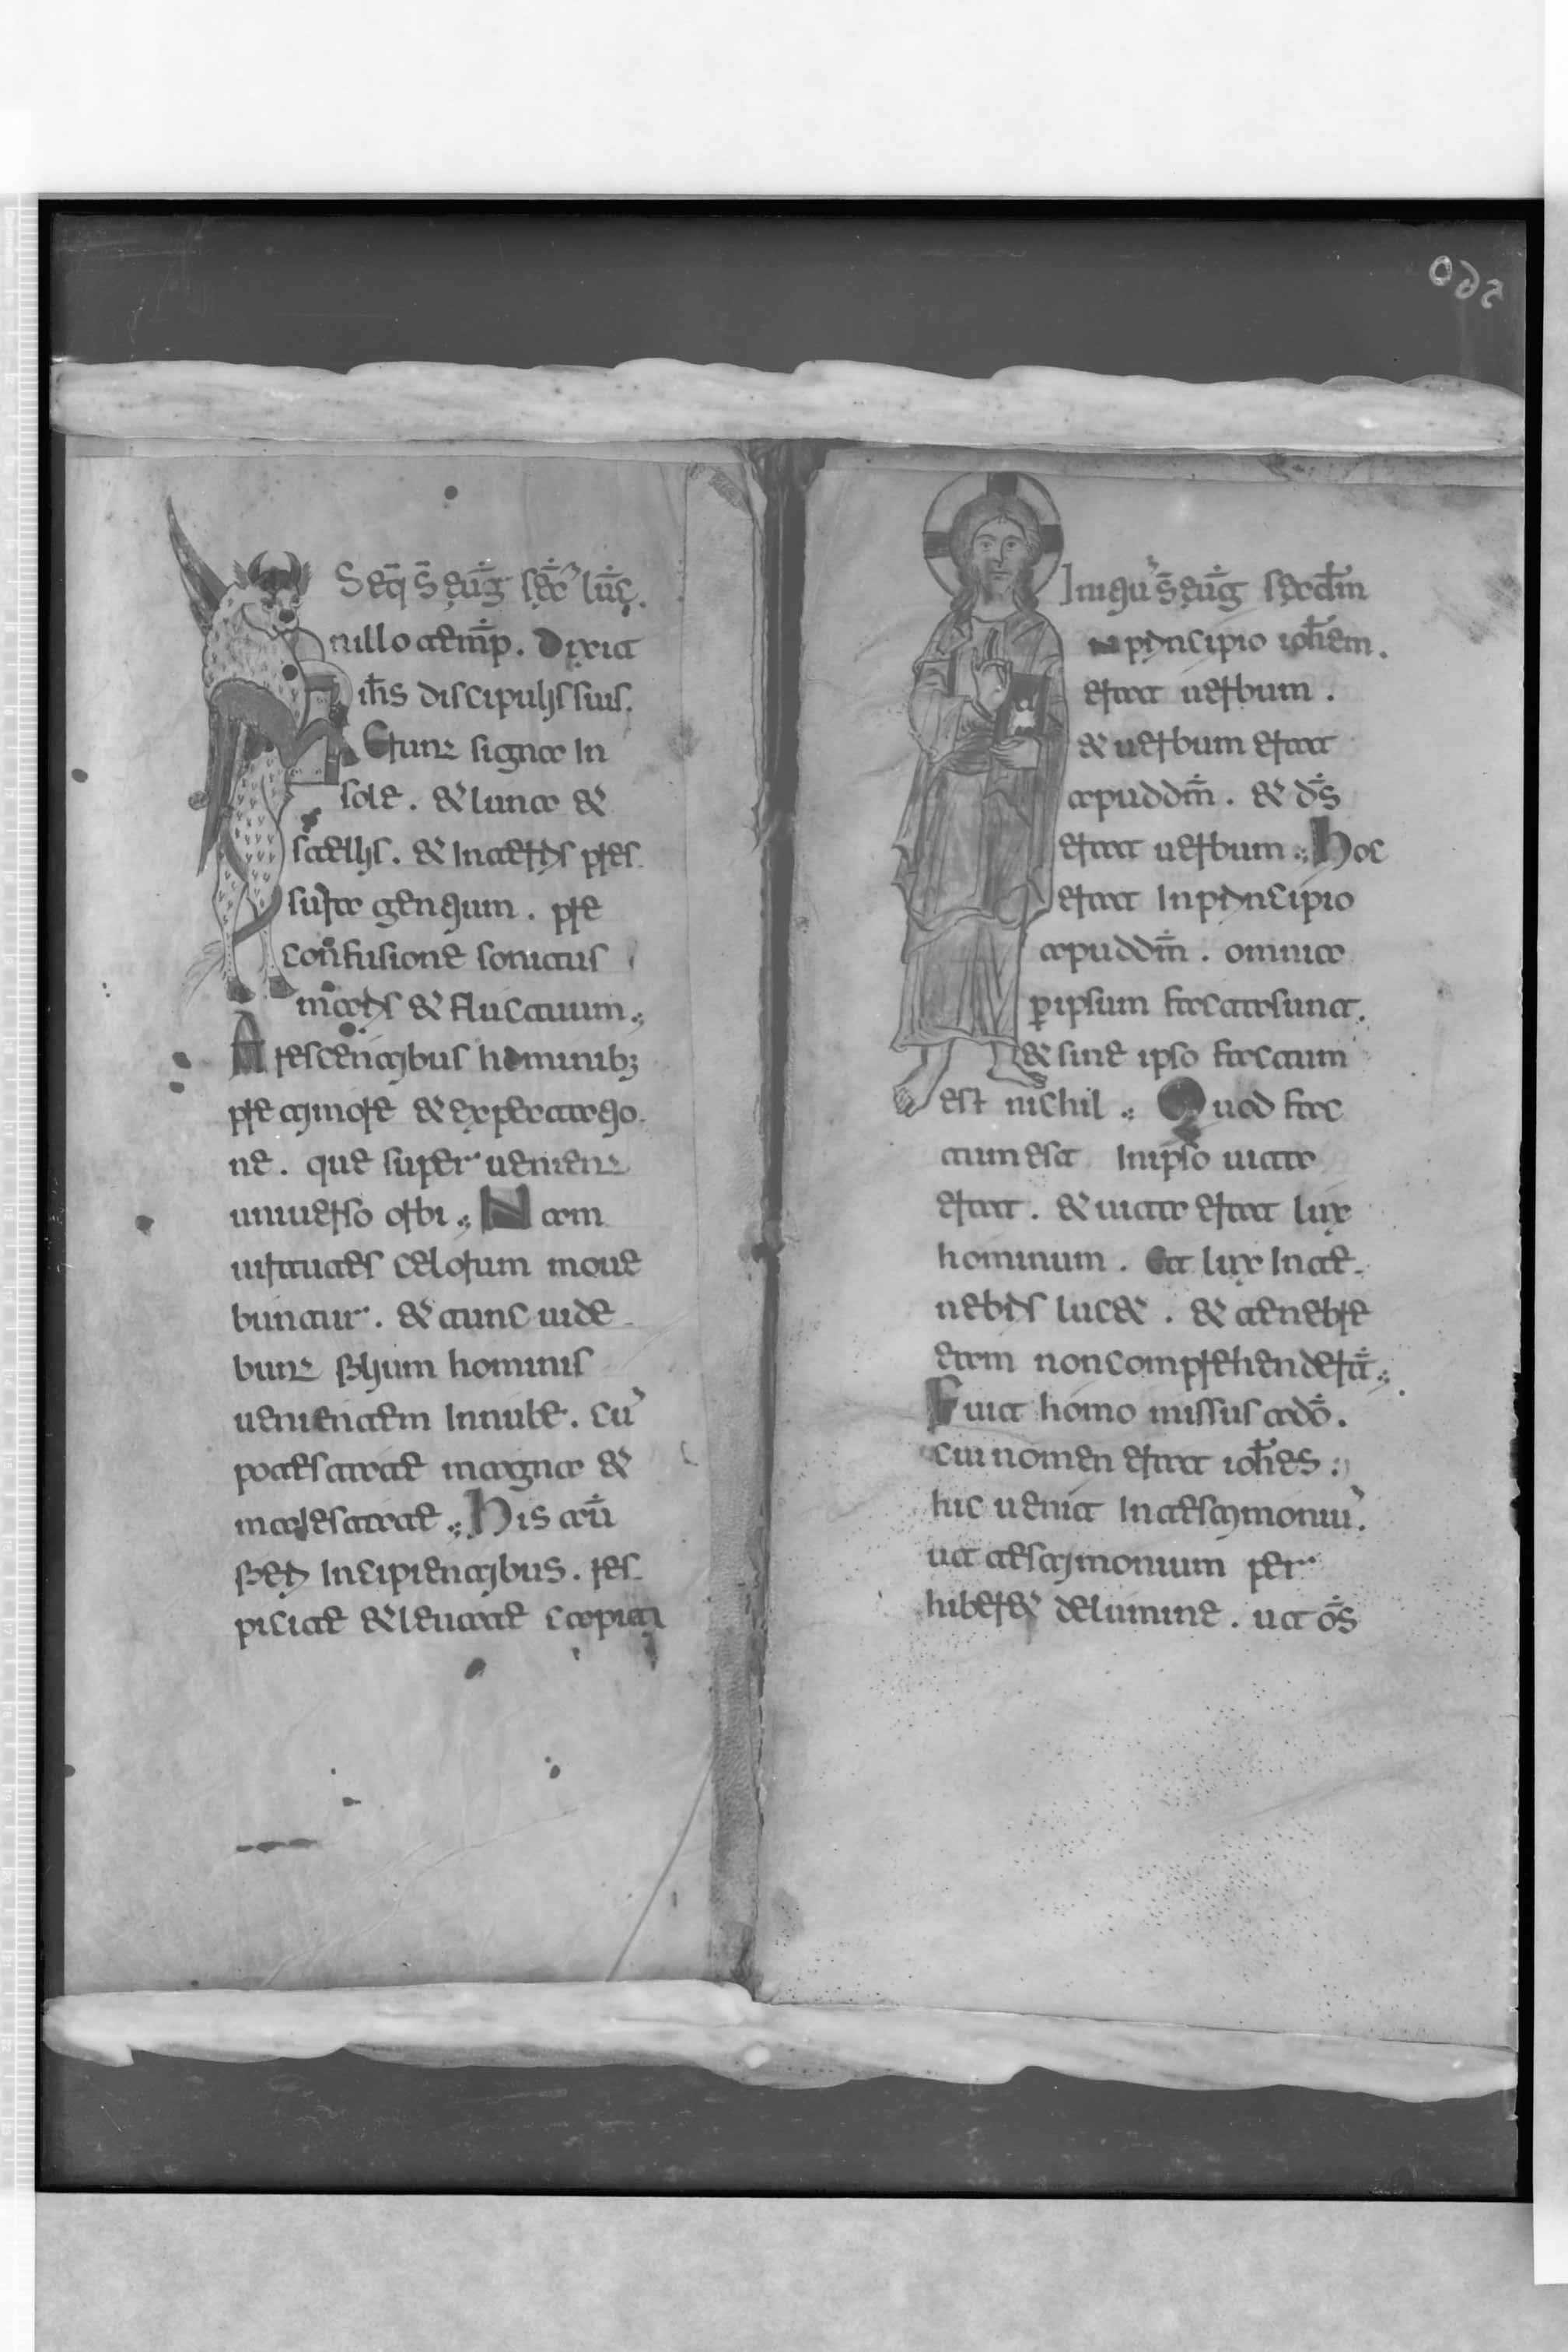 Seq̄ s̄ euḡ sec̄ luc̄.
n illo temp̄. Dixit
ih̄s discipulis suis.
Erunt signa in
sole. & luna &
stellis. & In terris pres
sura gentium. pre
confusione sonitus
maris & fluctuum.
Arescentibus hominib;
pre timore & expectatio
ne. que super uenient
uniuerso orbi. Nam
uirtutes celorum moue
buntur. & tunc uide
bunt filium hominis
uenientem In nube. cū
potestate magna &
maiestate. His aū
fieri Incipientibus. res
piciate & leuate capita
Initiū s̄ euḡ secdm̄
N principio ioh̄em.
erat uerbum.
& uerbum erat
apud dm̄. & ds̄
erat uerbum. Hoc
erat In principio
apud dm̄. omnia
p̱ ipsum facta sunt.
& sine ipso factum
est nichil. Quod fac
tum est In ipso uita
erat. & uita erat lux
hominum. Et lux In te
nebris luc&. & tenebre
eam non comprehendert̄.
Fuit homo missus a dō.
cui nomen erat ioh̄es.
hic uenit In testimoniū.
ut testimonium per
hiber& de lumine. ut os̄
560